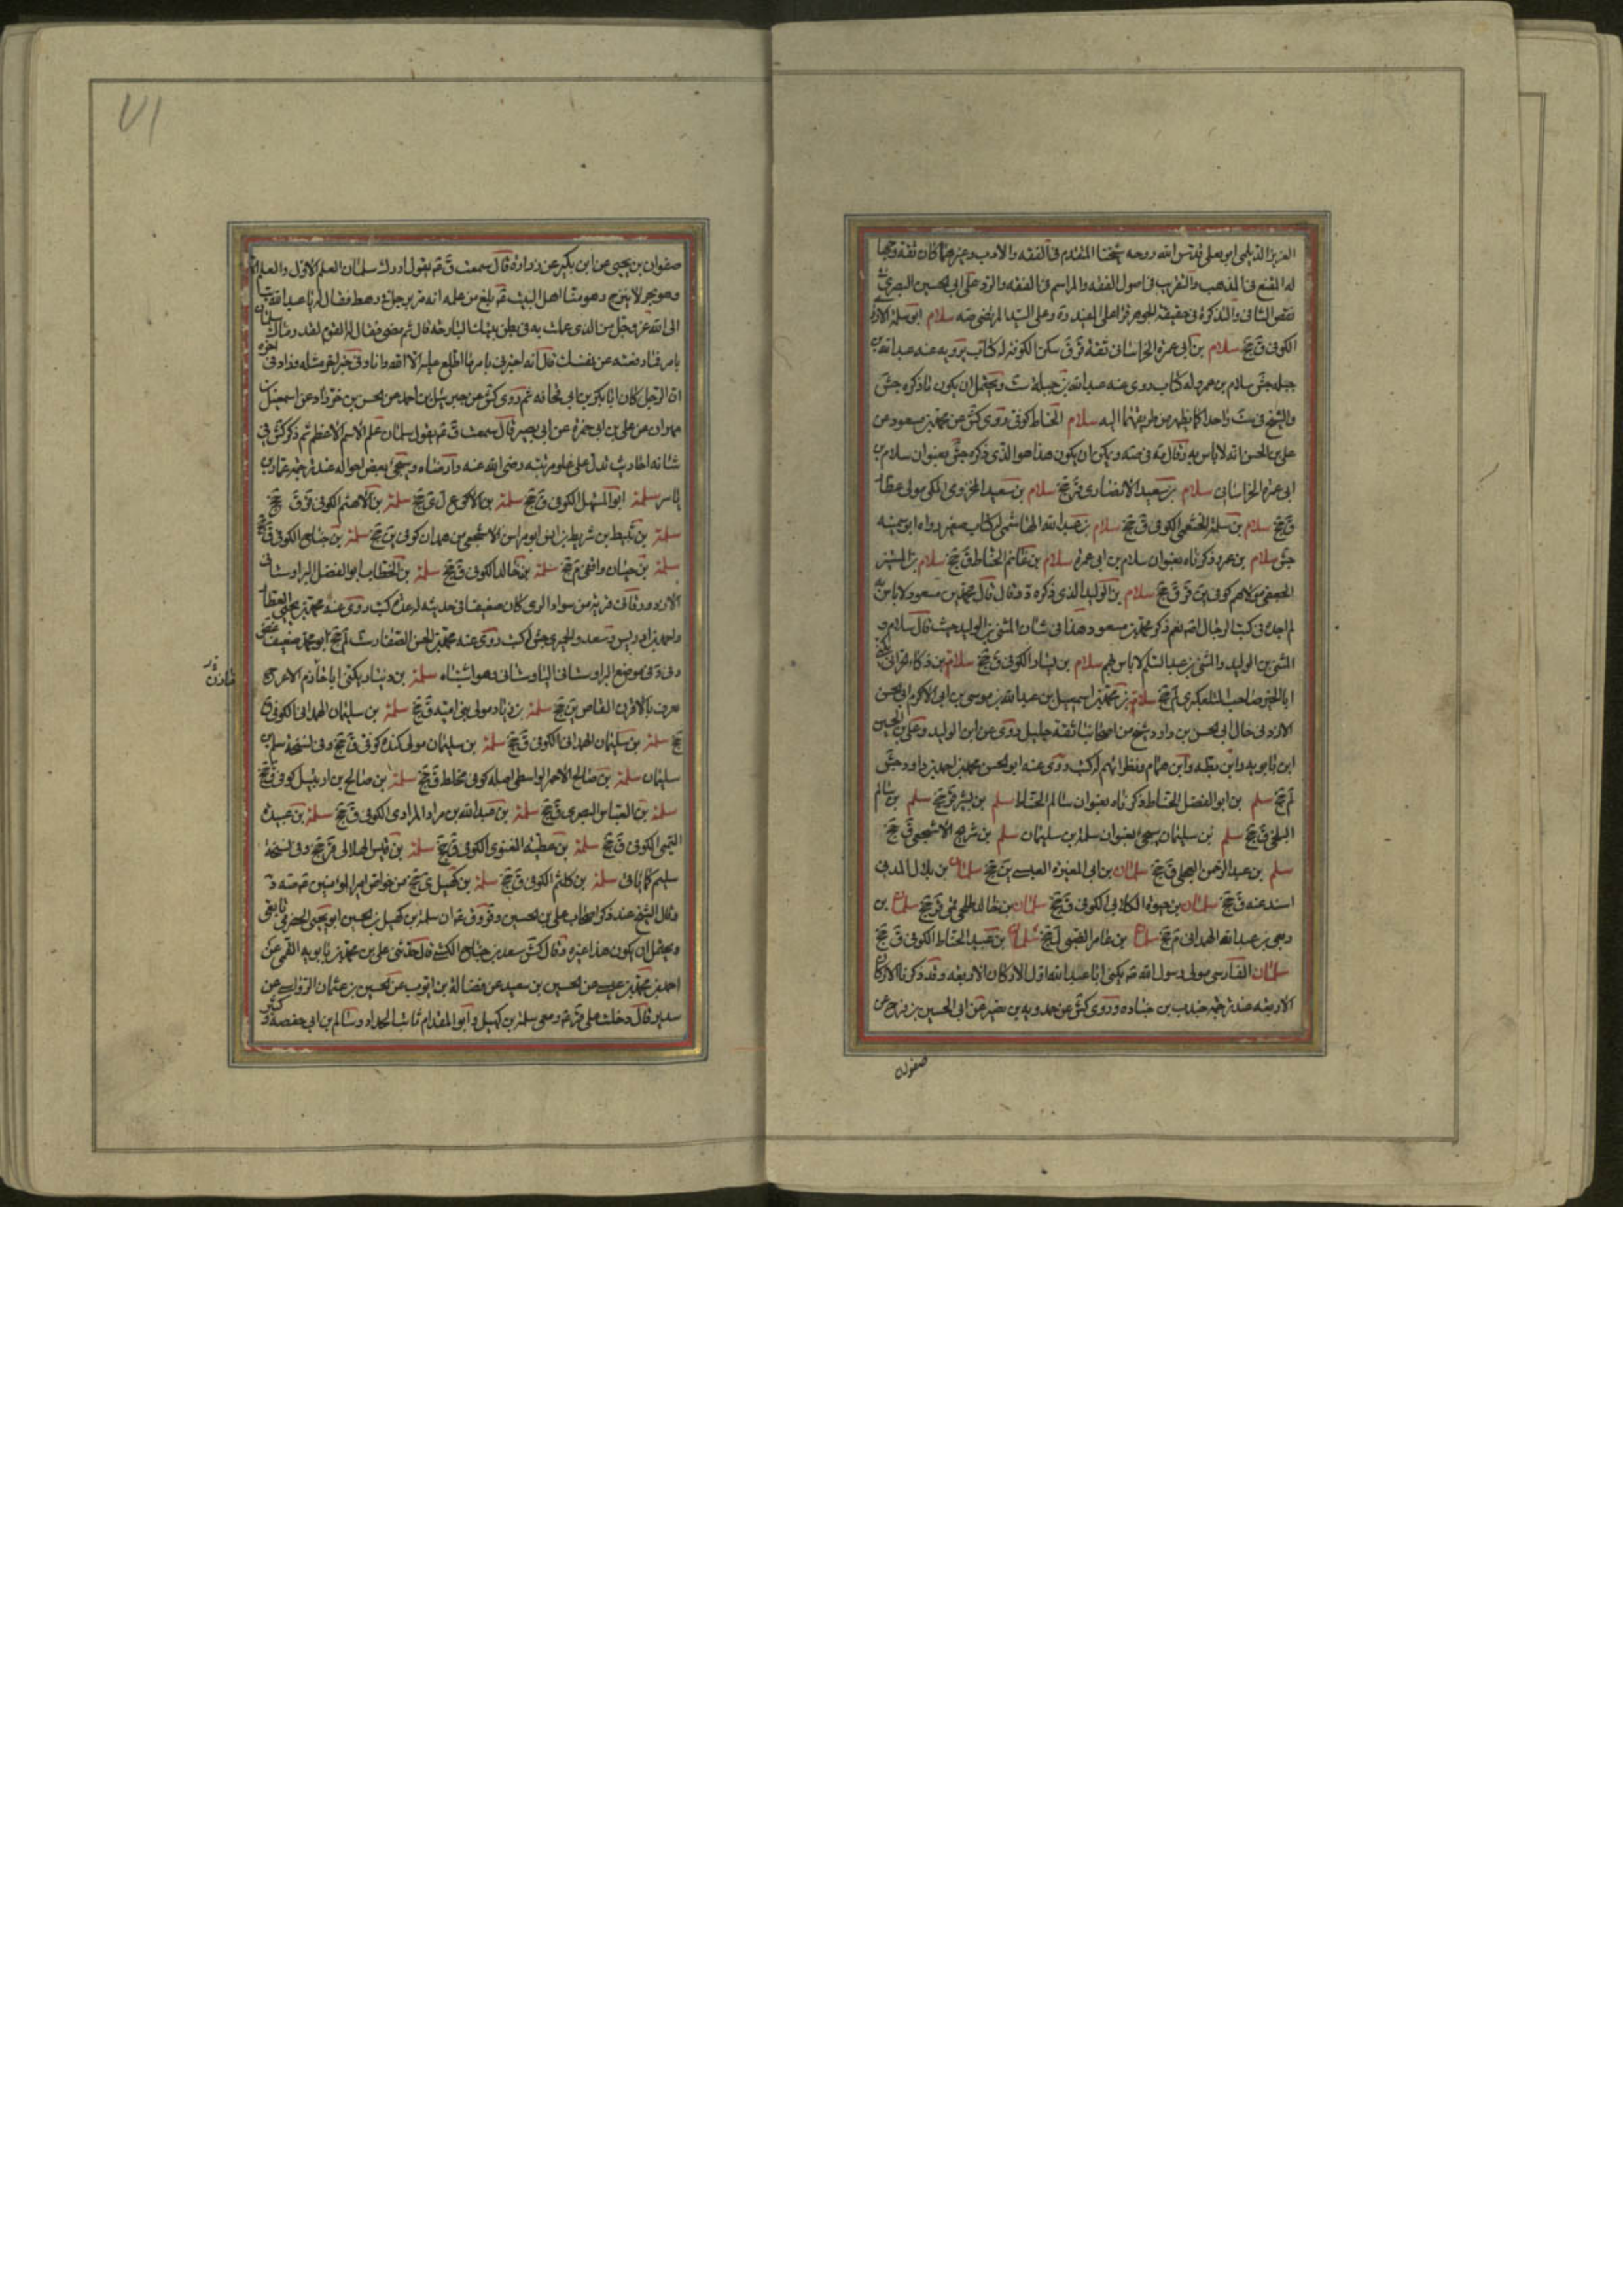 العزيز الديلمي ابو يعلى قدس الله روحه شيخنا المقدم في الفقه والادب وغيرهما كان ثقة وجها
له المقنع في المذهب والتقريب في اصول الفقه والمراسم في الفقه والرد على ابي الحسين البصري في
نقض الشافي والتذكرة في حقيقة الجوهر قرا على المفيد ره وعلى السيد المرتضى صه سلام ابو سلمة الازدي
الكوفي ق جخ سلام بن ابي عمرة الخراساني ثقة قر ق سكن الكوفة له كتاب يرويه عنه عبد الله بن
جبلة جش سلام بن عمرو له كتاب روى عنه عبد الله بن جبلة ست ويحتمل ان يكون ما ذكره جش
والشيخ في ست واحدا كما يظهر من طريقهما اليه سلام الحناط كوفي روى كش عن محمد بن مسعود عن
علي بن الحسن انه لا باس به وقال به في صه ويمكن ان يكون هذا هو الذي ذكره جش بعنوان سلام بن
ابي عمرة الخراساني سلام بن سعيد الانصاري قر جخ سلام بن سعيد المخزومي المكي مولى عطا
ق جخ سلام بن سلمة الخثعمي الكوفي ق جخ سلام بن عبد الله الهاشمي له كتاب صغير رواه ابو سمينة
جش سلام بن عمرو ذكرناه بعنوان سلام بن ابي عمرة سلام بن غانم الحناط ق جخ سلام بن المستنير
الجعفي مولاهم كوفي ين قر ق جخ سلام بن الوليد الذي ذكره د وقال قال محمد بن مسعود لا باس به
لم اجده في كتب الرجال اصه نعم ذكر محمد بن مسعود هذا في شان المثنى بن الوليد حيث قال سلام و
المثنى بن الوليد والمثنى بن عبد السلم لا باس بهم سلام بن يسار الكوفي ق جخ سلامة بن ذكاء الحراني يكنى
ابا الخير صاحب التلعكبري لم جخ سلامة بن محمد بن اسمعيل بن عبد الله بن موسى بن ابي الاكرم ابو الحسن
الارزني خال ابي الحسن بن داود شيخ من اصحابنا ثقة جليل روى عن ابن الوليد وعلي بن الحسين
ابن بابويه وابن بطة وابن همام ونظرائهم له كتب روى عنه ابو الحسن محمد بن احمد بن داود جش
لم جخ سلم بن ابو الفضل الحناط ذكرناه بعنوان سالم الحناط سلم بن بشر قر جخ سلم بن سالم
البلخي ق جخ سلم بن سليمان سيجئ بعنوان سلمة بن سليمان سلم بن شريح الاشجعي ق جخ
سلم بن عبد الرحمن العجلي ق جخ سلمان بن ابي المغيرة العبسي ين جخ سلمان بن بلال المدني
اسند عنه ق جخ سلمان بن حيوة الكلابي الكوفي ق جخ سلمان بن خالد قر جخ سلمان بن
ربعي بن عبد الله الهمداني م جخ سلمان بن عامر الضبي ل جخ سلمان بن عبيد الحناط الكوفي ق جخ
سلمان الفارسي مولى رسول الله صه يكنى ابا عبد الله اول الاركان الاربعة وقد ذكرنا الاركان
الاربعة عند ترجمة جندب بن جنادة وروى كش عن حمدويه بن نصير عن ابي الحسين بن نوح عن
صفوان
٧١
صفوان بن يحيى عن ابن بكير عن زرارة قال سمعت ق عه يقول ادرك سلمان العلم الاول والعلم الاخر
وهو بحر لا ينزح وهو منا اهل البيت بلغ من علمه انه مر برجل في رهط فقال له يا عبد الله تب
الى الله عز وجل من الذي عملت به في بطن بيتك البارحة قال ثم مضى فقال له القوم لقد رماك سلمان
بامر فما دفعته عن نفسك قال انه اخبرني بامر ما اطلع عليه الا الله وانا وفي خبر اخر مثله وزاد في اخره
ان الرجل كان ابا بكر بن ابي قحافة ثم روى كش عن جبرئيل بن احمد عن الحسن بن خرزاد عن اسمعيل بن
مهران عن علي بن ابي حمزة عن ابي بصير قال سمعت ق عه يقول سلمان علم الاسم الاعظم ثم ذكر كش في
شانه احاديث تدل على علو مرتبته رضي الله عنه وارضاه وسيجئ بعض احواله عند ترجمة عمار بن
ياسر سلمة ابو المستهل الكوفي ق جخ سلمة بن الاكوع ل ي جخ سلمة بن الاهثم الكوفي قر ق جخ
سلمة بن نبيط بن شريط بن انس ابو فراس الاشجعي من همدان كوفي ين جخ سلمة بن جناح الكوفي ق جخ
سلمة بن حيان واقفي م جخ سلمة بن خالد الكوفي ق جخ سلمة بن الخطاب ابو الفضل البراوستاني
الازدورقاني قرية من سواد الري كان ضعيفا في حديثه له عدة كتب روى عنه محمد بن يحيى العطار
واحمد بن ادريس وسعد والحميري جش له كتب روى عنه محمد بن الحسن الصفار ست لم جخ ابو محمد ضعيف غض
وفي د في موضع البراوستاني الباوستاني وهو اشتباه سلمة بن دينار يكنى ابا حازم الاعرج
يعرف بالافزر القاص ين جخ سلمة بن زياد مولى بني امية ق جخ سلمة بن سليمان الهمداني الكوفي ق
جخ سلمة بن سليمان الهمداني الكوفي ق جخ سلمة بن سليمان مولى كندة كوفي ق جخ وفي نسخة سلم بن
سليمان سلمة بن صالح الاحمر الواسطي اصله كوفي مخلط ق جخ سلمة بن صالح بن ارتبيل كوفي ق جخ
سلمة بن العباس البصري ق جخ سلمة بن عبد الله بن مراد المرادي الكوفي ق جخ سلمة بن عبيدة
التيمي الكوفي ق جخ سلمة بن عطية الغنوي الكوفي ق جخ سلمة بن قيس الهلالي قر جخ وفي نسخة
سليم كما ياتي سلمة بن كلثم الكوفي ق جخ سلمة بن كهيل ي جخ من خواص امير المؤمنين عه صه د
وقال الشيخ عند ذكر اصحاب علي بن الحسين وقر وق عه ان سلمة بن كهيل بن الحسين ابو يحيى الحضرمي تابعي
ويحتمل ان يكون هذا غيره وقال كش سعد بن جناح الكشي قال حدثني علي بن محمد بن يزيد القمي عن
احمد بن محمد بن عيسى عن الحسين بن سعيد عن فضالة بن ايوب عن الحسين بن عثمان الرواسي عن
سدير قال دخلت على قر عه ومعي سلمة بن كهيل وابو المقدام ثابت الحداد وسالم بن ابي حفصة وكثير